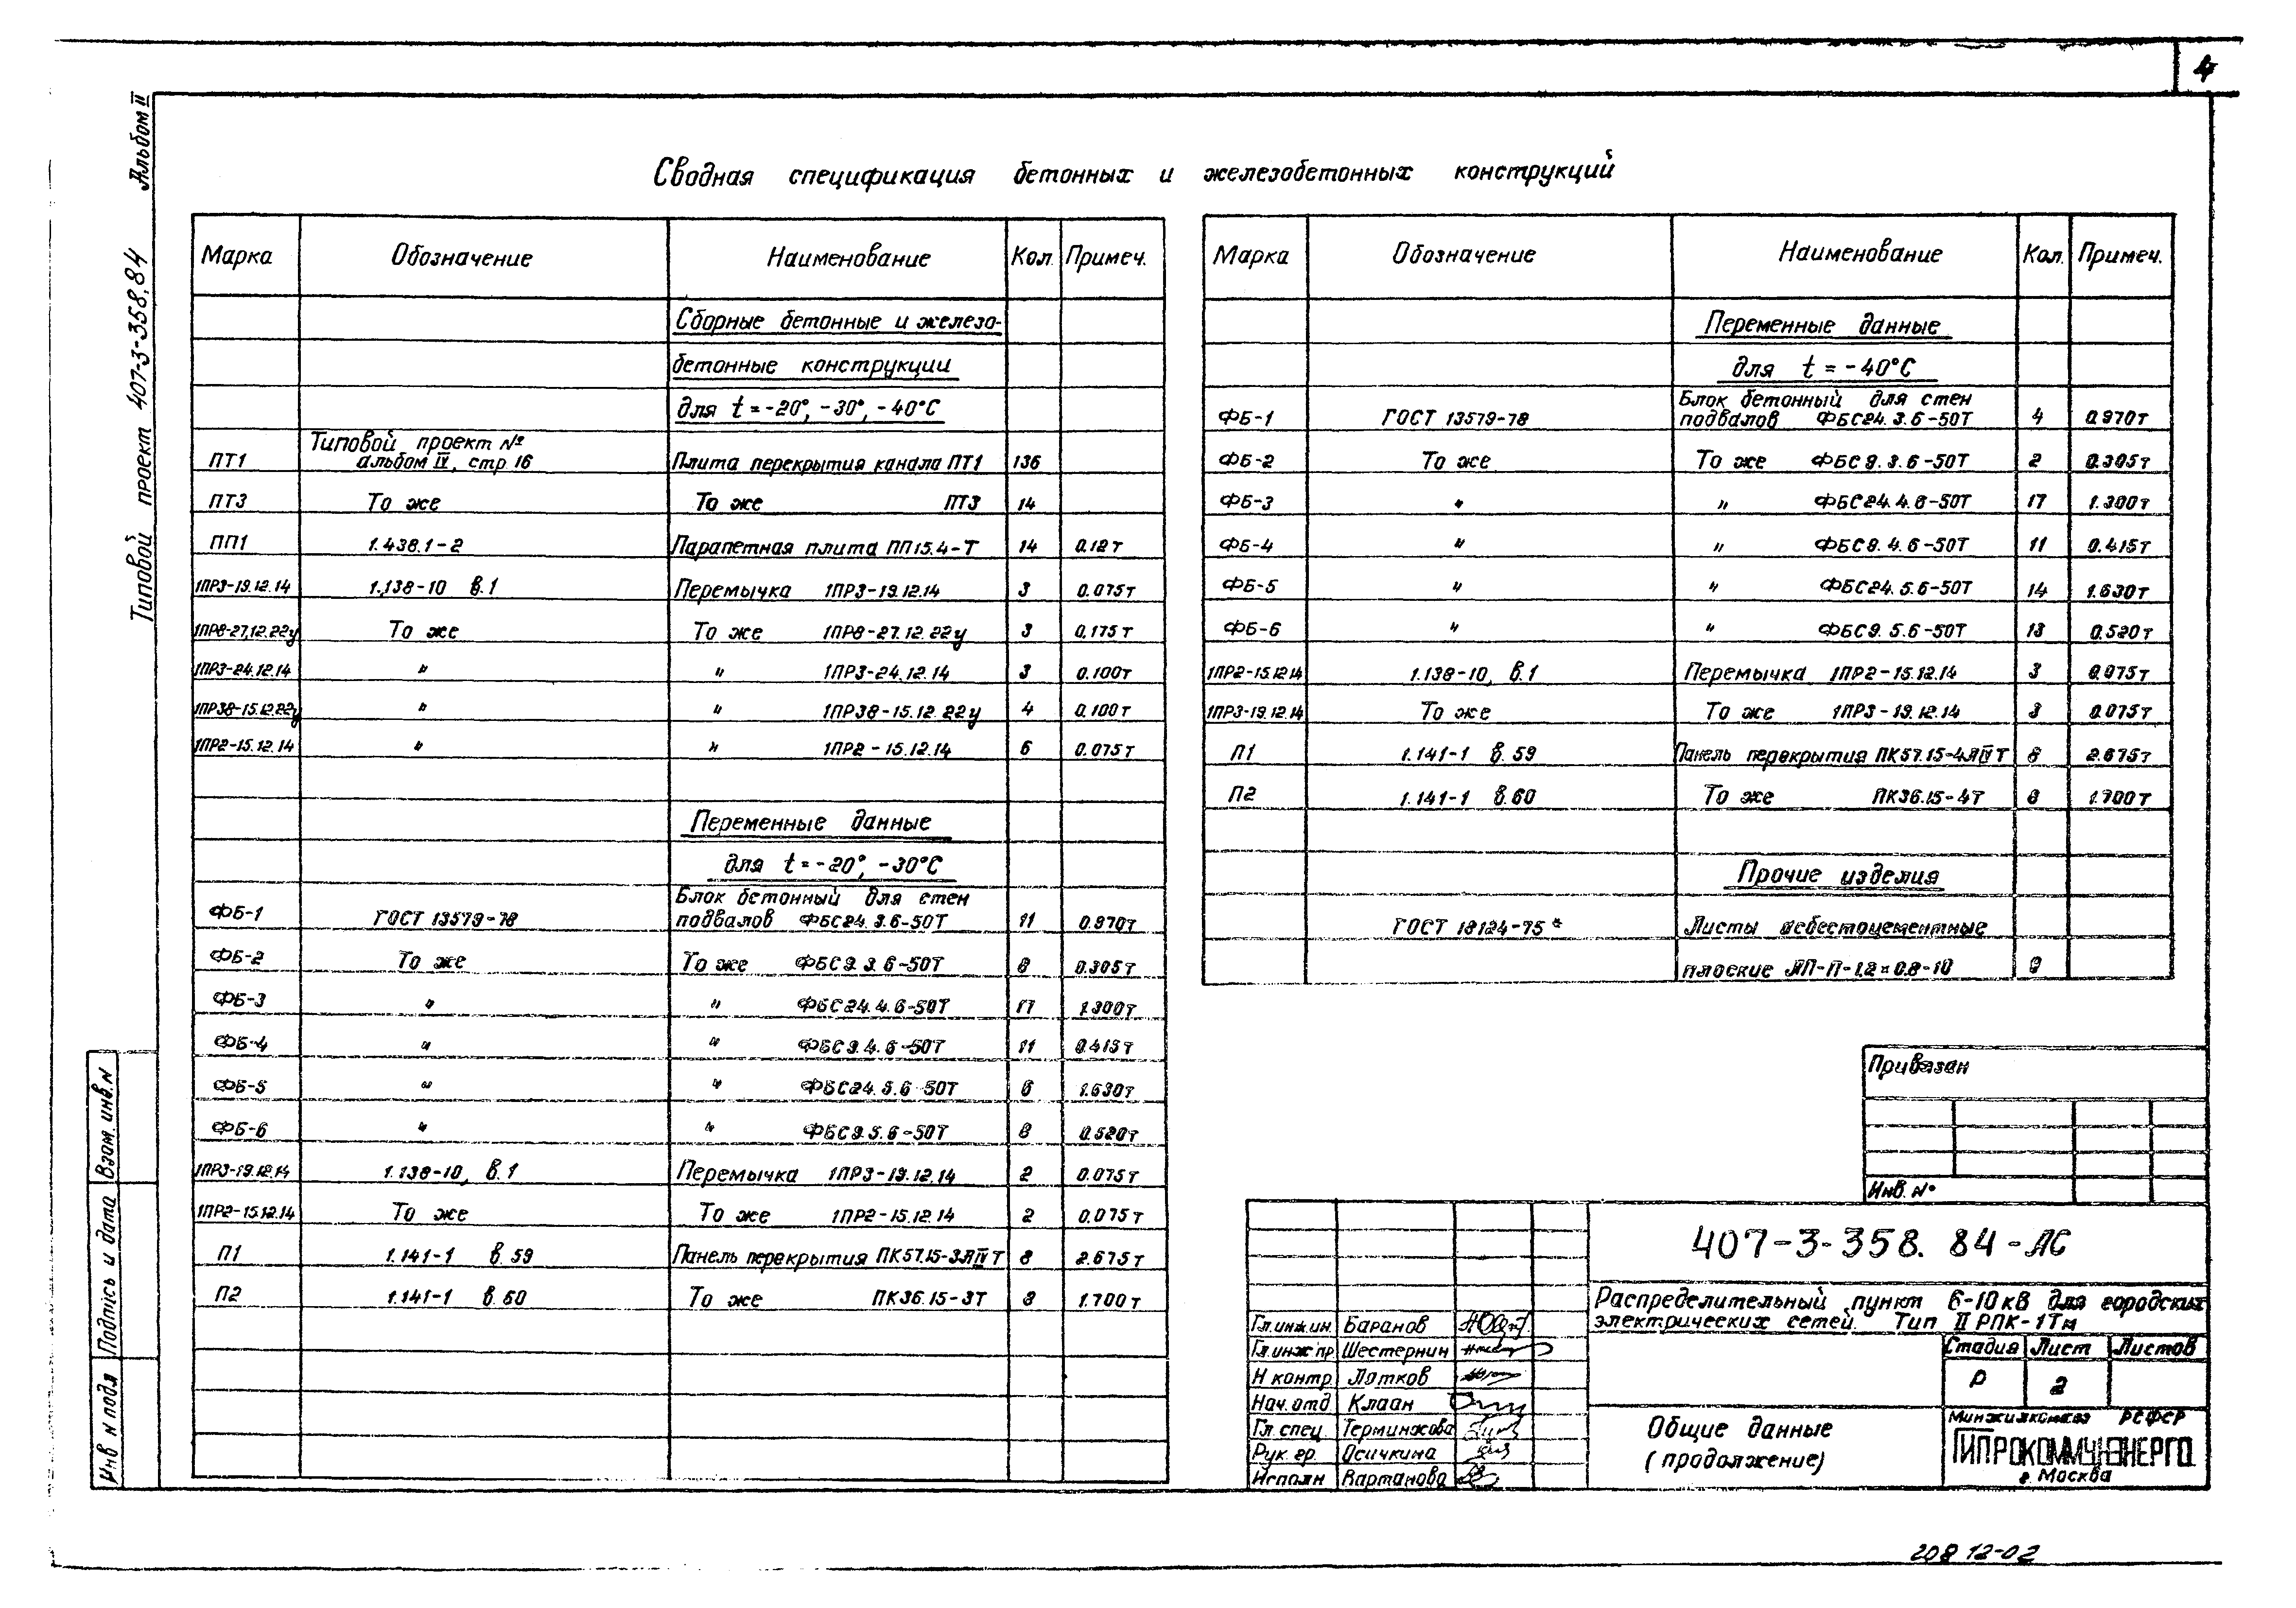 4
Типовой проект 407-3-358.84 Альбом II
Сводная спецификация бетонных и железобетонных конструкций
Марка Обозначение Наименование Кол. Примеч.
Сборные бетонные и железо-
бетонные конструкции
для t = -20°, -30°, -40°С
Типовой проект №
ПТ1 альбом IV, стр 16 Плита перекрытия канала ПТ1 136
ПТ3 То же То же ПТ3 14
ПП1 1.438.1-2 Парапетная плита ПП15.4-Т 14 0.12т
1ПР3-19.12.14 1.138-10 в.1 Перемычка 1ПР3-19.12.14 3 0.075т
1ПР8-27.12.22у То же То же 1ПР8-27.12.22у 3 0.175т
1ПР3-24.12.14 " " 1ПР3-24.12.14 3 0.100т
1ПР38-15.12.22у " " 1ПР38-15.12.22у 4 0.100т
1ПР2-15.12.14 " " 1ПР2-15.12.14 6 0.075т
Переменные данные
для t = -20°, -30°С
Блок бетонный для стен
ФБ-1 ГОСТ 13579-78 подвалов ФБС24.3.6-50Т 11 0.970т
ФБ-2 То же То же ФБС9.3.6-50Т 8 0.305т
ФБ-3 " " ФБС24.4.6-50Т 17 1.300т
ФБ-4 " " ФБС9.4.6-50Т 11 0.415т
ФБ-5 " " ФБС24.5.6-50Т 6 1.630т
ФБ-6 " " ФБС9.5.6-50Т 8 0.520т
1ПР3-19.12.14 1.138-10, в.1 Перемычка 1ПР3-19.12.14 2 0.075т
1ПР2-15.12.14 То же То же 1ПР2-15.12.14 2 0.075т
П1 1.141-1 в.59 Панель перекрытия ПК57.15-3АIVТ 8 2.675т
П2 1.141-1 в.60 То же ПК36.15-3Т 8 1.700т
Марка Обозначение Наименование Кол. Примеч.
Переменные данные
для t = -40°С
Блок бетонный для стен
ФБ-1 ГОСТ 13579-78 подвалов ФБС24.3.6-50Т 4 0.970т
ФБ-2 То же То же ФБС9.3.6-50Т 2 0.305т
ФБ-3 " " ФБС24.4.6-50Т 17 1.300т
ФБ-4 " " ФБС9.4.6-50Т 11 0.415т
ФБ-5 " " ФБС24.5.6-50Т 14 1.630т
ФБ-6 " " ФБС9.5.6-50Т 13 0.520т
1ПР2-15.12.14 1.138-10, в.1 Перемычка 1ПР2-15.12.14 3 0.075т
1ПР3-19.12.14 То же То же 1ПР3-19.12.14 3 0.075т
П1 1.141-1 в.59 Панель перекрытия ПК57.15-4АIVТ 8 2.675т
П2 1.141-1 в.60 То же ПК36.15-4Т 8 1.700т
Прочие изделия
ГОСТ 18124-75* Листы асбестоцементные
плоские ЛП-П-1,2×0.8-10 9
Привязан
Инв. №
407-3-358.84-АС
Распределительный пункт 6-10кВ для городских
электрических сетей. Тип II РПК-1Тм
Стадия Лист Листов
Р 2
Общие данные
(продолжение)
Минжилкомхоз РСФСР
ГИПРОКОММУНЭНЕРГО
г. Москва
Гл.инж.ин. Баранов
Гл.инж.пр. Шестернин
Н контр Лотков
Нач. отд Клаан
Гл. спец. Терминасова
Рук. гр. Осичкина
Исполн Вартанова
Инв N подл Подпись и дата Взам. инв. N
20812-02